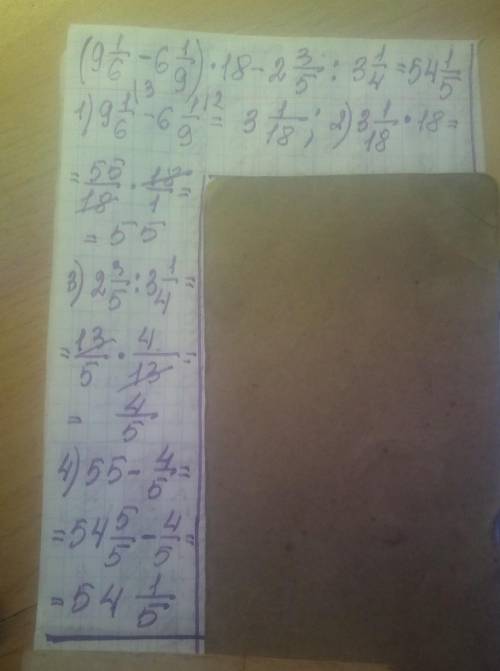 (9 1/6 - 6 1/9) · 18 - 2 3/5 : 3 1/4 = 54 1/5
1) 9 1/6 |3 - 6 1/9 |2 = 3 1/18; 2) 3 1/18 · 18 =
= 55/18 · 18/1 =
= 55
3) 2 3/5 : 3 1/4 =
= 13/5 · 4/13 =
= 4/5
4) 55 - 4/5 =
= 54 5/5 - 4/5 =
= 54 1/5